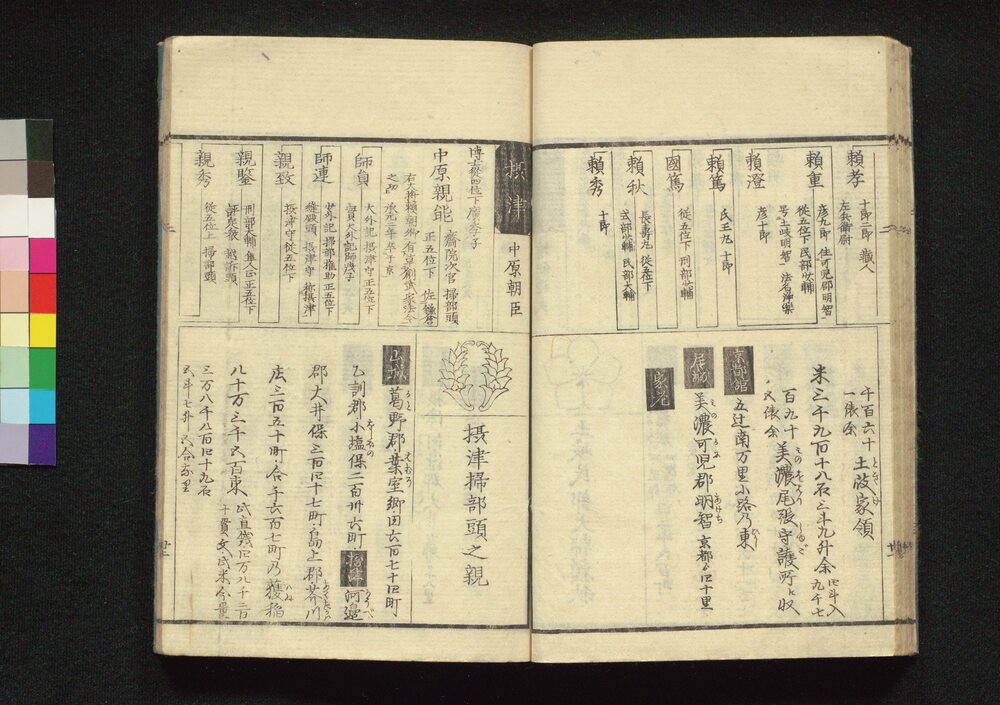 頼孝 十郎三郎 蔵人
左兵衛尉
頼重 彦九郎 住可児郡明智
従五位下 民部少輔
号土岐明智 法名浄栄
頼澄 彦十郎
頼篤 氏王丸 十郎
國篤 従五位下 刑部少輔
頼秋 長壽丸 従五位下
式部少輔 民部大輔
頼秀 十郎
千百六十
一俵余
土岐家領
米三千九百十八石三斗九升余
四斗入
九千七
百九十
美濃尾張守護所ニ収
京都舘
五辻南万里小路乃東
居城
美濃可児郡明智
京都ゟ四十里
摂津
中原朝臣
博士従四位下廣季子
中原親能 齋院次官 掃部頭
正五位下
右大将頼朝卿
承元二年卒于京
師員 大外記 摂津守 正五位下
實大外記師茂子
師連
縫殿頭 摂津守 称摂津
親致 摂津守 従五位下
親鑒 刑部大輔 隼人正 正五位下
評定衆
親秀 従五位下 掃部頭
摂津掃部頭之親
山城
葛野郡葉室郷田六百七十四町
乙訓郡小塩保二百卅六町
摂津
河邉
郡大井保三百四十七町島上郡芥川
庄三百五十町合千六百七町乃穫稲
八十万三千五百束
三万八千八百四十九石
五斗七升